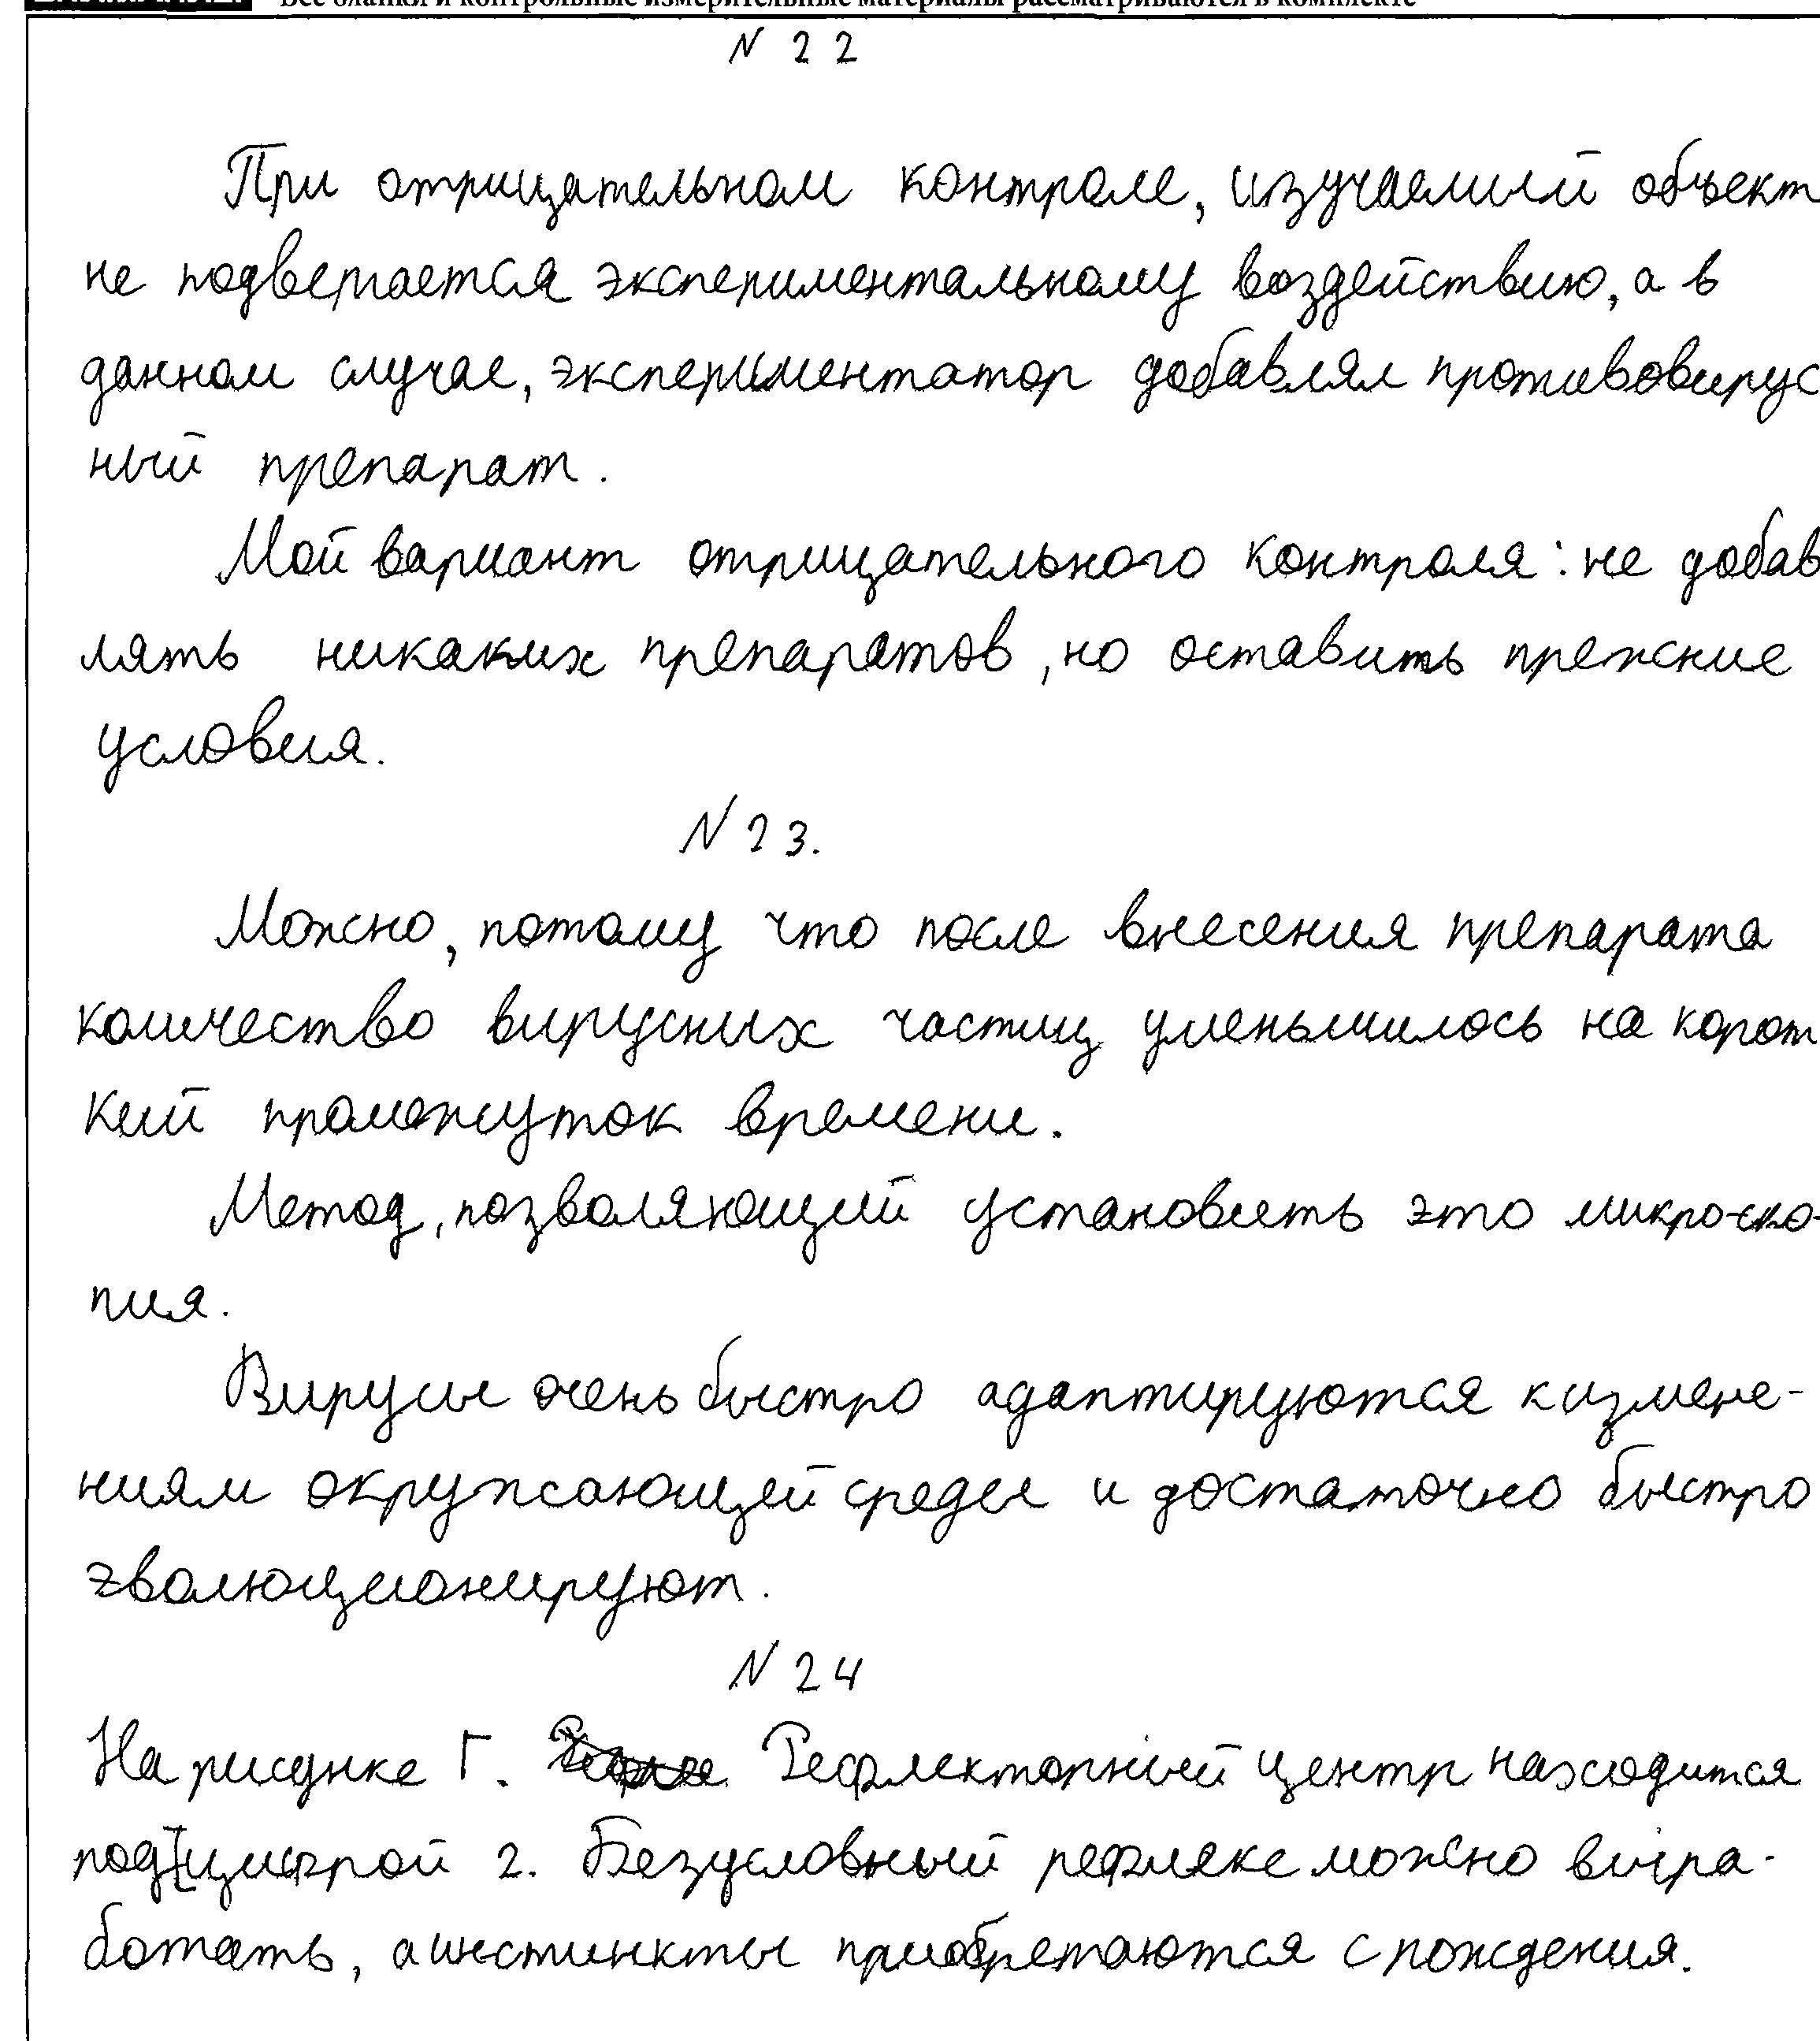 Все бланки и контрольные измерительные материалы рассматриваются в комплекте
N 22
При отрицательном контроле, изучаемый объект
не подвергается экспериментальному воздействию, а в
данном случае, экспериментатор добавлял противовирус
ный препарат.
Мой вариант отрицательного контроля: не добав
лять никаких препаратов, но оставить прежние
условия.
N 23.
Можно, потому что после внесения препарата
количество вирусных частиц уменьшилось на корот
кий промежуток времени.
Метод, позволяющий установить это микроско-
пия.
Вирусы очень быстро адаптируются к измене-
ниям окружающей среды и достаточно быстро
эволюционируют.
N 24
На рисунке Г. Рефлекторный центр находится
под цифрой 2. Безусловный рефлекс можно выра-
ботать, а инстинкты приобретаются с рождения.